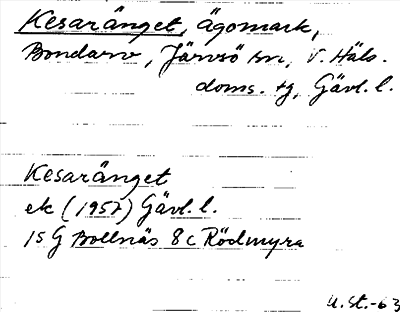 Kesaränget, ägomark,
Bondarv, Järvsö sn, V. Häls.
doms. tg, Gävl. l.
Kesaränget
ek (1957) Gävl. l.
15 G Bollnäs 8 c Rödmyra
U. St. -63